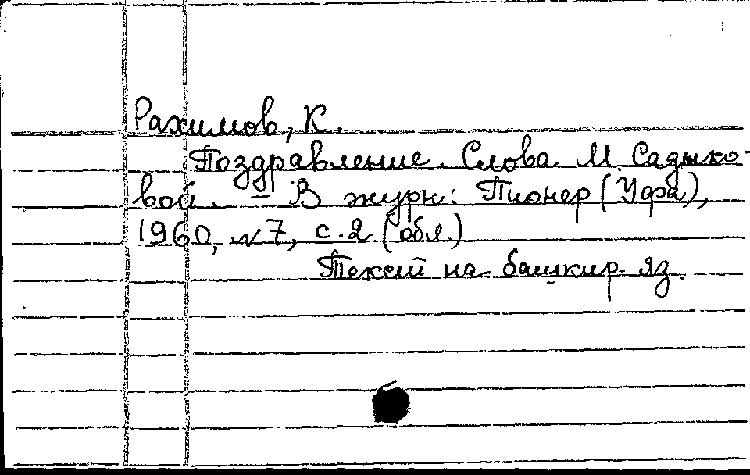 Рахимов, К.
Поздравление. Слова М Садыко-
вой. - В журн: Пионер (Уфа),
1960, №7, с.2 (обл.)
Текст на башкир. яз.